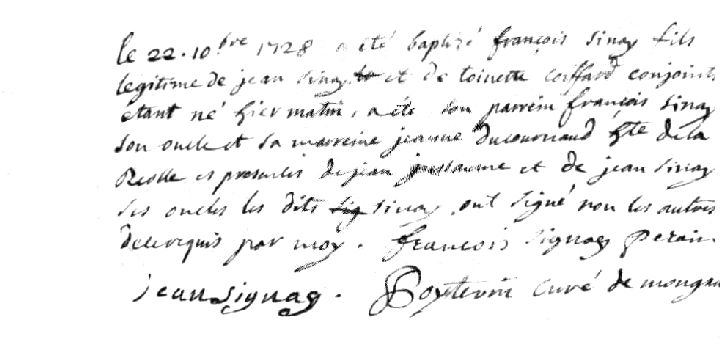 le 22. 10bre 1728 a été baptisé françois sinay fils
legitime de jean sinay et de toinette coiffard conjoints
etant né hier matin, a été son parrein françois sinay
son oncle et sa marreine jeanne ducournaud hte de la
Reolle es presencies de jean et de jean sinay
ses oncles les dits sig sinay ont signé non les autres
de ce requis par moy. françois signag perain
jean signag. curé de mongau